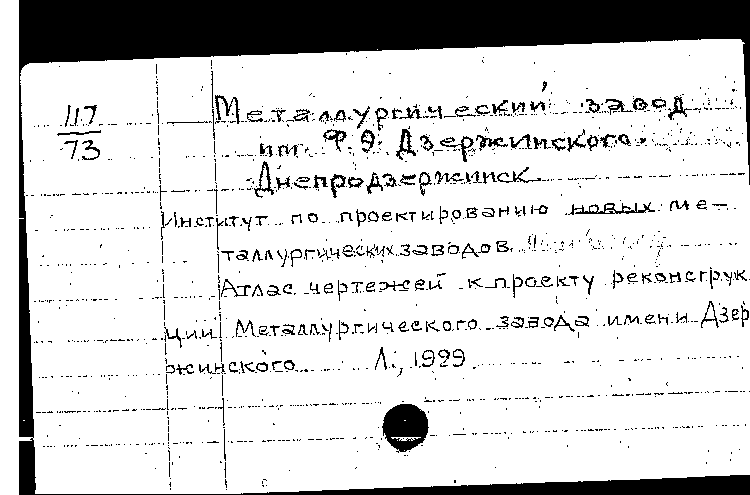 117
73
Металлургический завод
им. Ф. Э. Дзержинского.
Днепродзержинск.
Институт по проектированию новых ме-
таллургических заводов.
Атлас чертежей к проекту реконструк
ции Металлургического завода имени Дзер
жинского Л., 1929